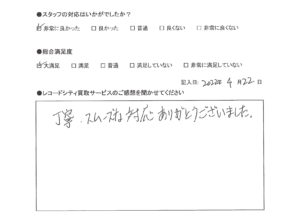 ●スタッフの対応はいかがでしたか?
☑非常に良かった □良かった □普通 □良くない □非常に良くない
●総合満足度
☑大満足 □満足 □普通 □満足していない □非常に満足していない
記入日: 2022年 4月 22日
●レコードシティ買取サービスのご感想を聞かせてください
丁寧、スムーズな対応ありがとうございました。